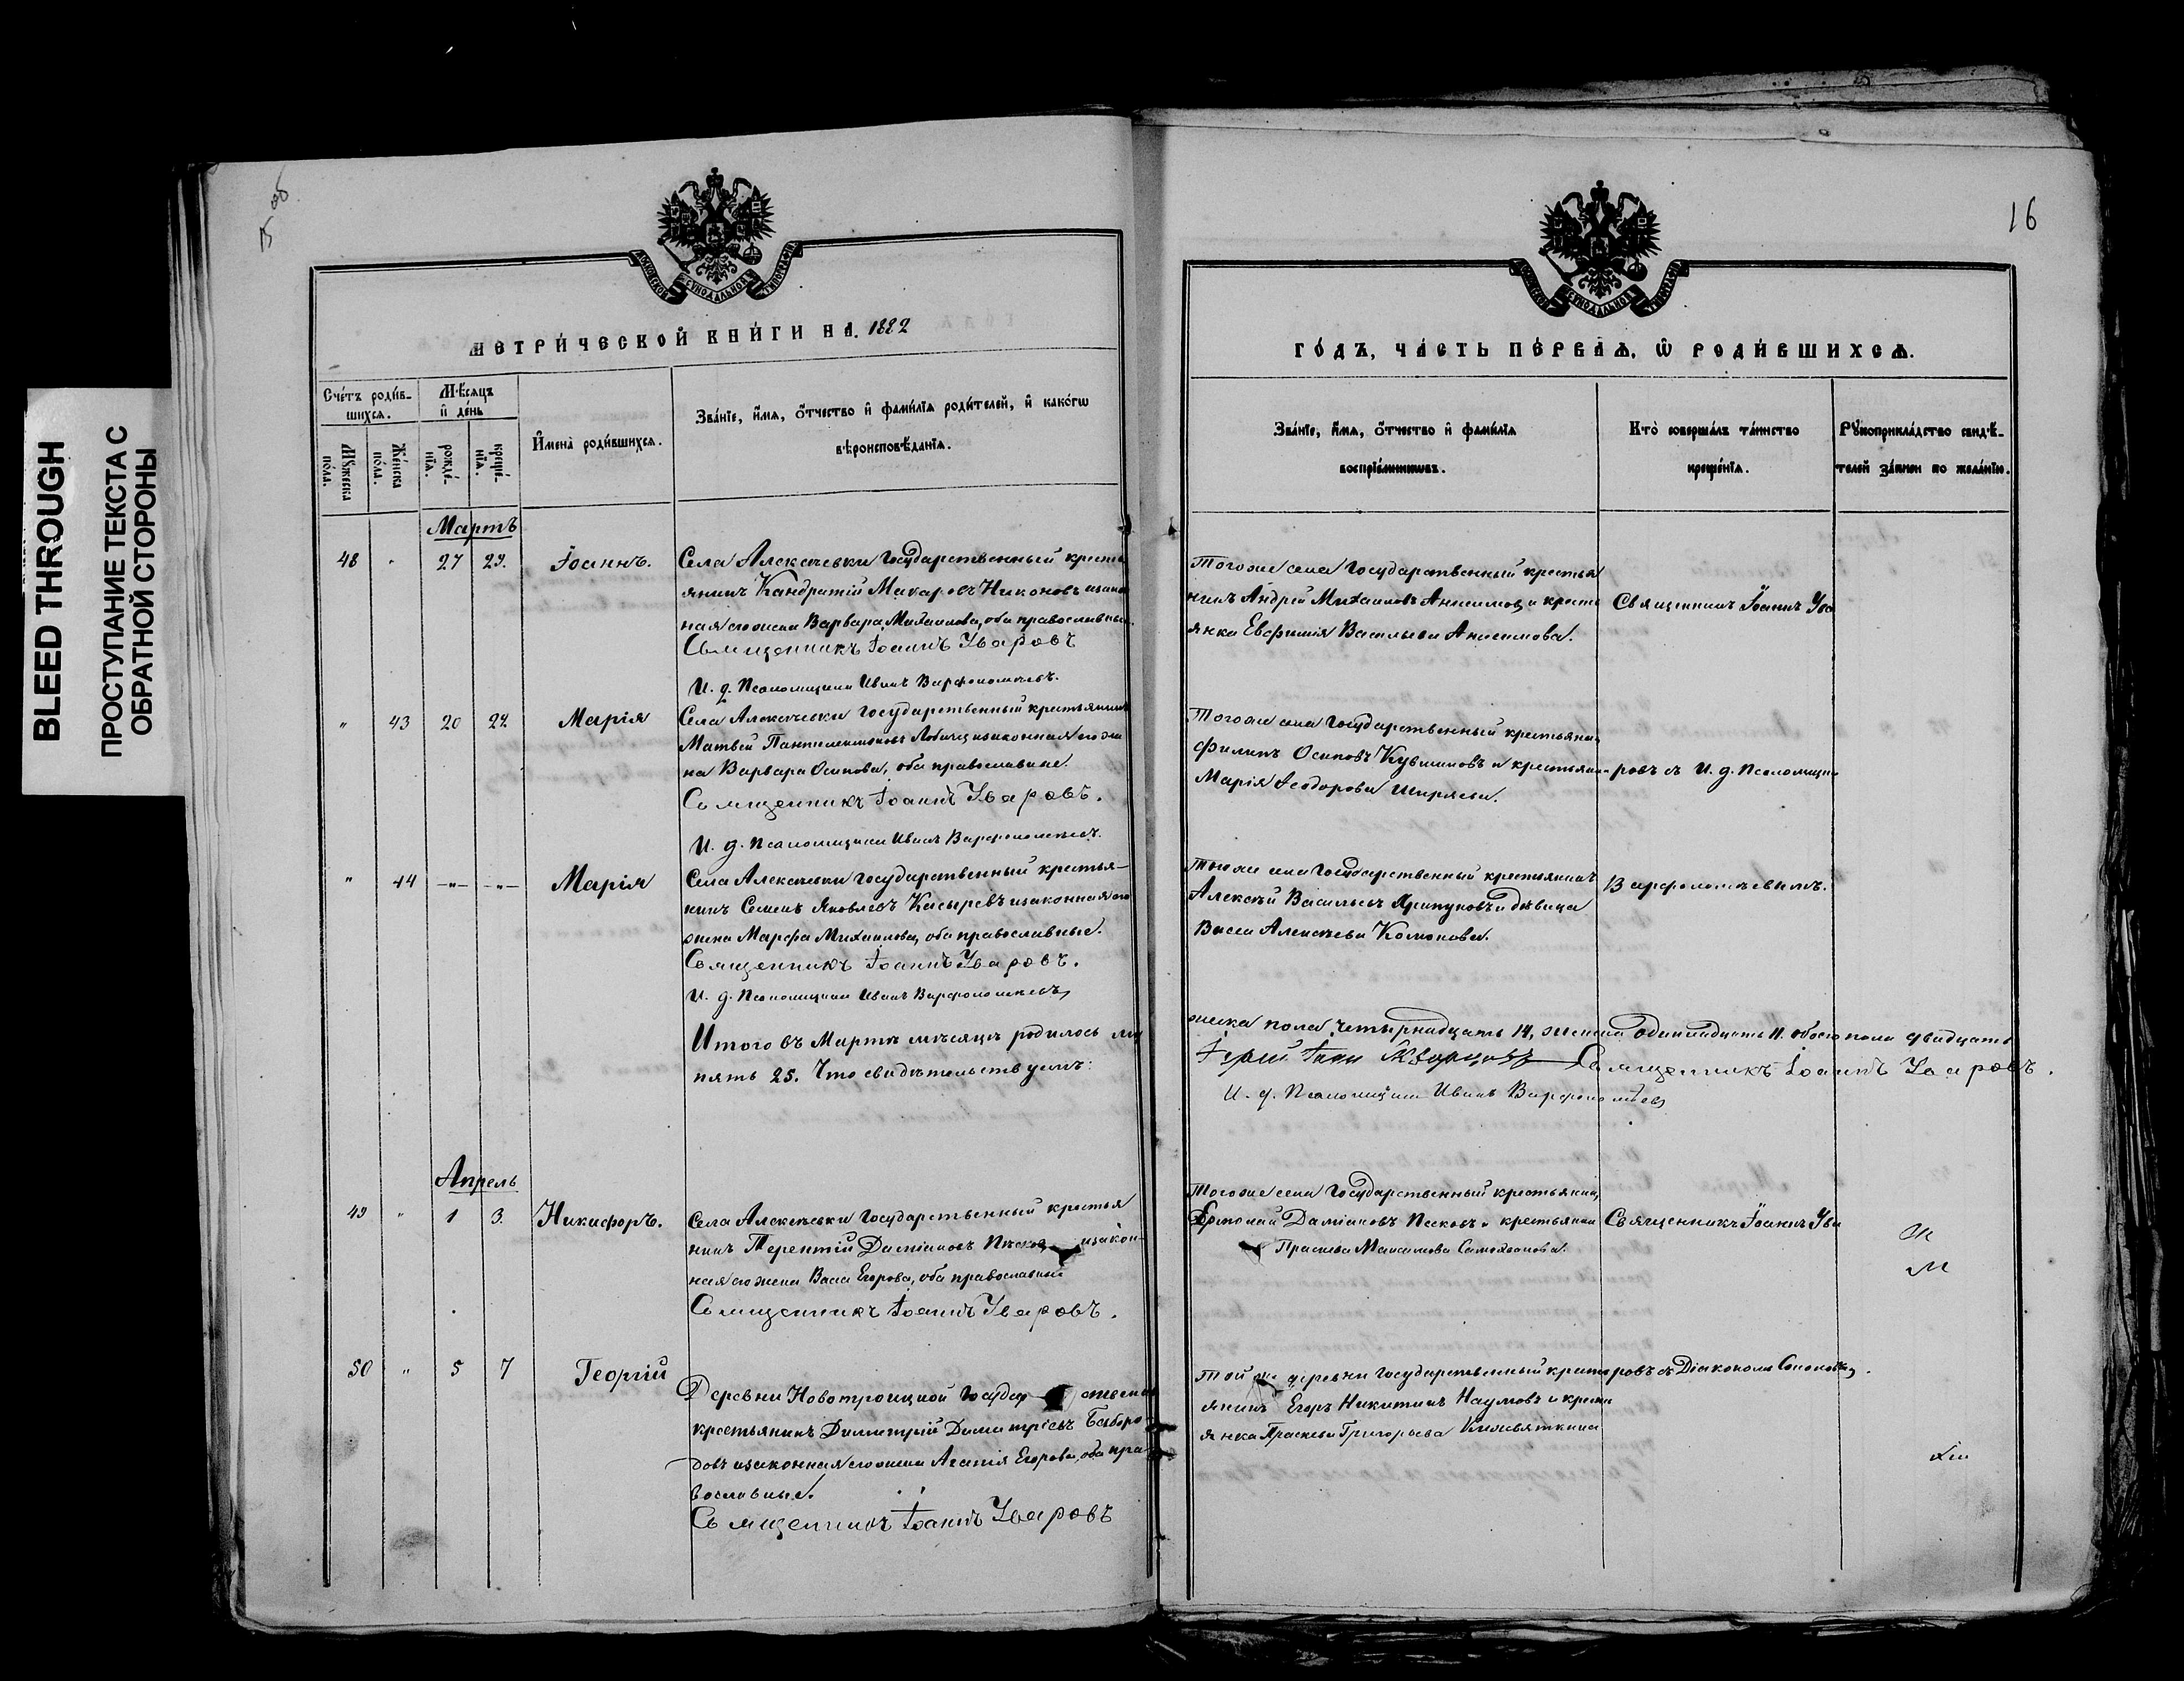 BLEED THROUGH
ПРОСТУПАНИЕ ТЕКСТА С
ОБРАТНОЙ СТОРОНЫ
15 об.
МОСКОВСКОЙ СѴНОДАЛЬНОЙ ТИПОГРАФІИ
МЕТРИ́ЧЕСКОЙ КНИ́ГИ НА 1882
Сче́тъ роди́в-
шихся.
Мѣ́сяцъ
и҆ де́нь
Мꙋ́жеска
по́ла.
Же́нска
по́ла.
рожде́-
нїѧ.
креще́-
нїѧ.
И҆мена̀ роди́вшихсѧ.
Зва́нїе, и҆́мѧ, ѻ҆́тчество и҆ фами́лїѧ роди́телей, и҆ како́гѡ
вѣроисповѣ́данїѧ.
Мартъ
48 " 27 29. Іоаннъ.
Села Алексѣевки Государственный кресть
янинъ Кандратій Макаровъ Никоновъ изакон
ная его жена Варвара Михаилова, оба православные.
Священникъ Іоаннъ Уваровъ
И. д. Псаломщика Иванъ Варфоломѣевъ.
" 43 20 22 Марія
Села Алексѣевки Государственный крестьянинъ
Матвей Пантилимоновъ изаконная его же
на Варвара Осипова, оба православные.
Священникъ Іоаннъ Уваровъ.
И. д. Псаломщика Иванъ Варфоломѣевъ.
" 44 -"- -"- Марія
Села Алексѣевки Государственный крестья-
нинъ Семенъ Яковлевъ Касыревъ изаконная его
жена Марфа Михаилова, оба православные.
Священникъ Іоаннъ Уваровъ.
И. д. Псаломщика Иванъ Варфоломѣевъ
Итого въ Мартѣ мѣсяцѣ родилось му
пять 25. Что свидѣтельствуемъ:
Апрель
49 " 1 3. Никифоръ.
Села Алексѣевки Государственный крестья
нинъ Терентій Даміановъ Песков изакон-
ная его жена Васса Егорова, оба православные
Священникъ Іоаннъ Уваровъ.
50 " 5 7 Георгій
Деревни Новотроицкой Государственный
крестьянинъ Димитрій Димитріевъ Безборо
довъ изаконная его жена Агапія Егорова, оба пра-
вославные.
Священникъ Іоаннъ Уваровъ
16
МОСКОВСКОЙ СѴНОДАЛЬНОЙ ТИПОГРАФІИ
ГО́ДЪ, ЧА́СТЬ ПЕ́РВАѦ, Ѡ҆ РОДИ́ВШИХСѦ.
Зва́нїе, и҆́мѧ, ѻ҆́тчество и҆ фами́лїѧ
воспрїе́мниковъ.
Кто̀ соверша́лъ та́инство
креще́нїѧ.
Рꙋкоприкла́дство свидѣ́-
телей за́писи по жела́нїю.
Того же села Государственный крестья
нинъ Андрей Михаиловъ Анисимовъ и кресть
янка Евфимія Васильева Анисимова.
Священникъ Іоаннъ Ува
Того же села Государственный крестьянин
Филипъ Осиповъ Кувшиновъ и крестьянка
Марія Ѳеодорова Ширяева.
ровъ съ И. д. Псаломщика
Того же села Государственный крестьянинъ
Алексѣй Васильевъ и дѣвица
Васса Алексѣева Комонова.
Варфоломѣевымъ.
жеска пола четырнадцать 14, женска одиннадцать 11. обоего пола двадцать
Священникъ Іоаннъ Уваровъ.
И. д. Псаломщика Иванъ Варфоломѣев
Того же села Государственный крестьянин
Ермолай Даміановъ Песковъ и крестьянка
Праскева Максимова Самохвалова.
Священникъ Іоаннъ Ува
Той же деревни Государственный кресть
янинъ Егоръ Никитинъ Наумовъ и кресть
янка Праскева Григорьева
ровъ съ Діакономъ